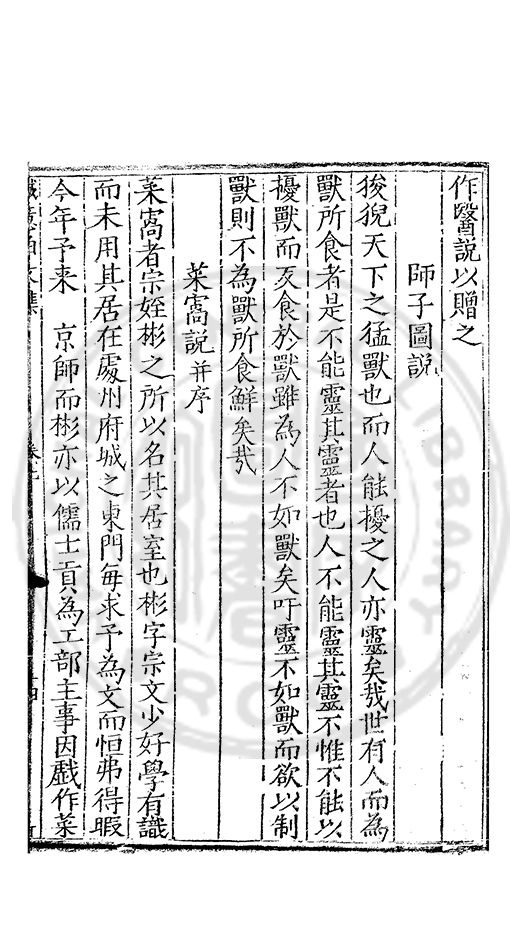 作醫說以贈之
師子圖說
狻猊天下之猛獸也而人能擾之人亦靈矣哉世有人而為
獸所食者是不能靈其靈者也人不能靈其靈不惟不能以
擾獸而反食於獸雖為人不如獸矣吁靈不如獸而欲以制
獸則不為獸所食鮮矣哉
菜窩說并序
菜窩者宗姪彬之所以名其居室也彬字宗文少好學有識
而未用其居在處州府城之東門每求予為文而恒弗得暇
今年予来 京師而彬亦以儒士貢為工部主事因戲作菜